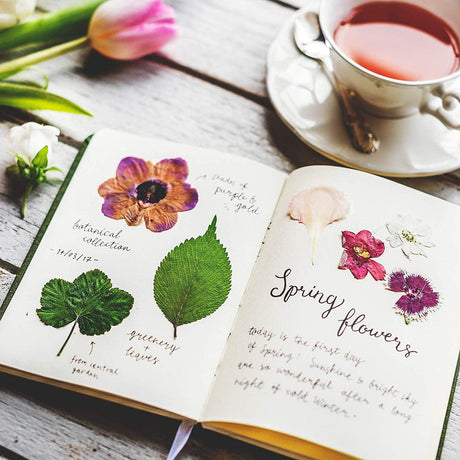 shades of
purple &
gold
botanical
collection
-14/03/17-
greenery
leaves
from central
garden
Spring flowers
today is the first day
of spring! Sunshine & bright sky
are so wonderful after a long
night of cold Winter.